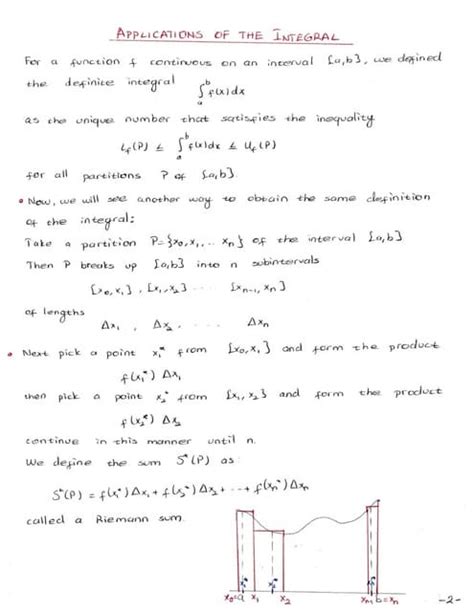 APPLICATIONS OF THE INTEGRAL
For a function f continuous on an interval [a,b], we defined
the definite integral ∫ₐᵇ f(x)dx
as the unique number that satisfies the inequality
L_f(P) ≤ ∫ₐᵇ f(x)dx ≤ U_f(P)
for all partitions P of [a,b].
• Now, we will see another way to obtain the same definition
of the integral:
Take a partition P={x₀,x₁,.. xₙ} of the interval [a,b]
Then P breaks up [a,b] into n subintervals
[x₀,x₁], [x₁,x₂] .... [xₙ₋₁,xₙ]
of lengths
Δx₁, Δx₂, .... Δxₙ
• Next pick a point x₁* from [x₀,x₁] and form the product
f(x₁*) Δx₁
then pick a point x₂* from [x₁,x₂] and form the product
f(x₂*) Δx₂
continue in this manner until n.
We define the sum S*(P) as:
S*(P) = f(x₁*)Δx₁ + f(x₂*)Δx₂ + ... + f(xₙ*)Δxₙ
called a Riemann sum.
x₁* x₂* xₙ*
x₀=a x₁ x₂ xₙ₋₁ b=xₙ
-2-